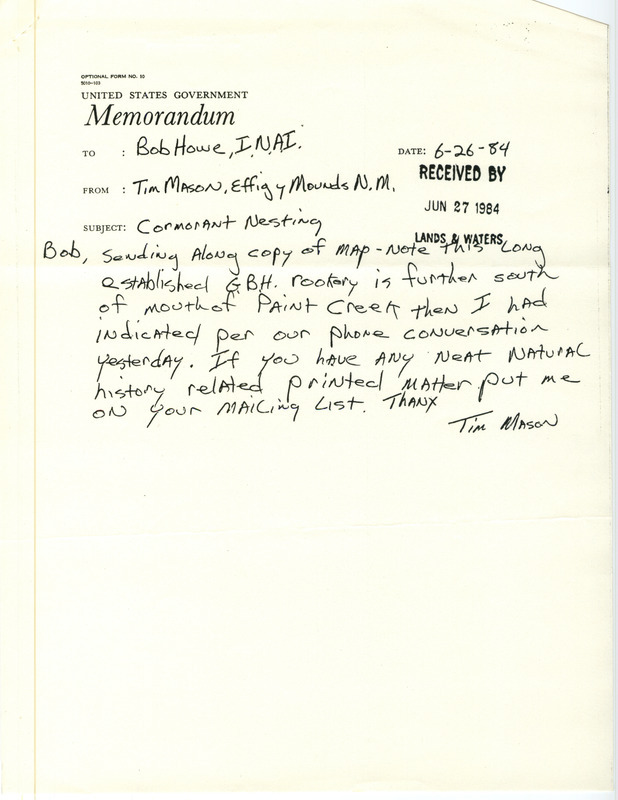 OPTIONAL FORM NO. 10
5010-103
UNITED STATES GOVERNMENT
Memorandum
TO : Bob Howe, I.N.A.I.
DATE: 6-26-84
RECEIVED BY
JUN 27 1984
LANDS & WATERS
FROM : Tim Mason, Effigy Mounds N.M.
SUBJECT: Cormorant Nesting
Bob, Sending Along copy of MAP - Note this Long
established GBH. rookery is further south
of mouth of Paint Creek then I had
indicated per our phone conversation
yesterday. If you have any neat natural
history related printed matter put me
on your mailing list. Thanx
Tim Mason